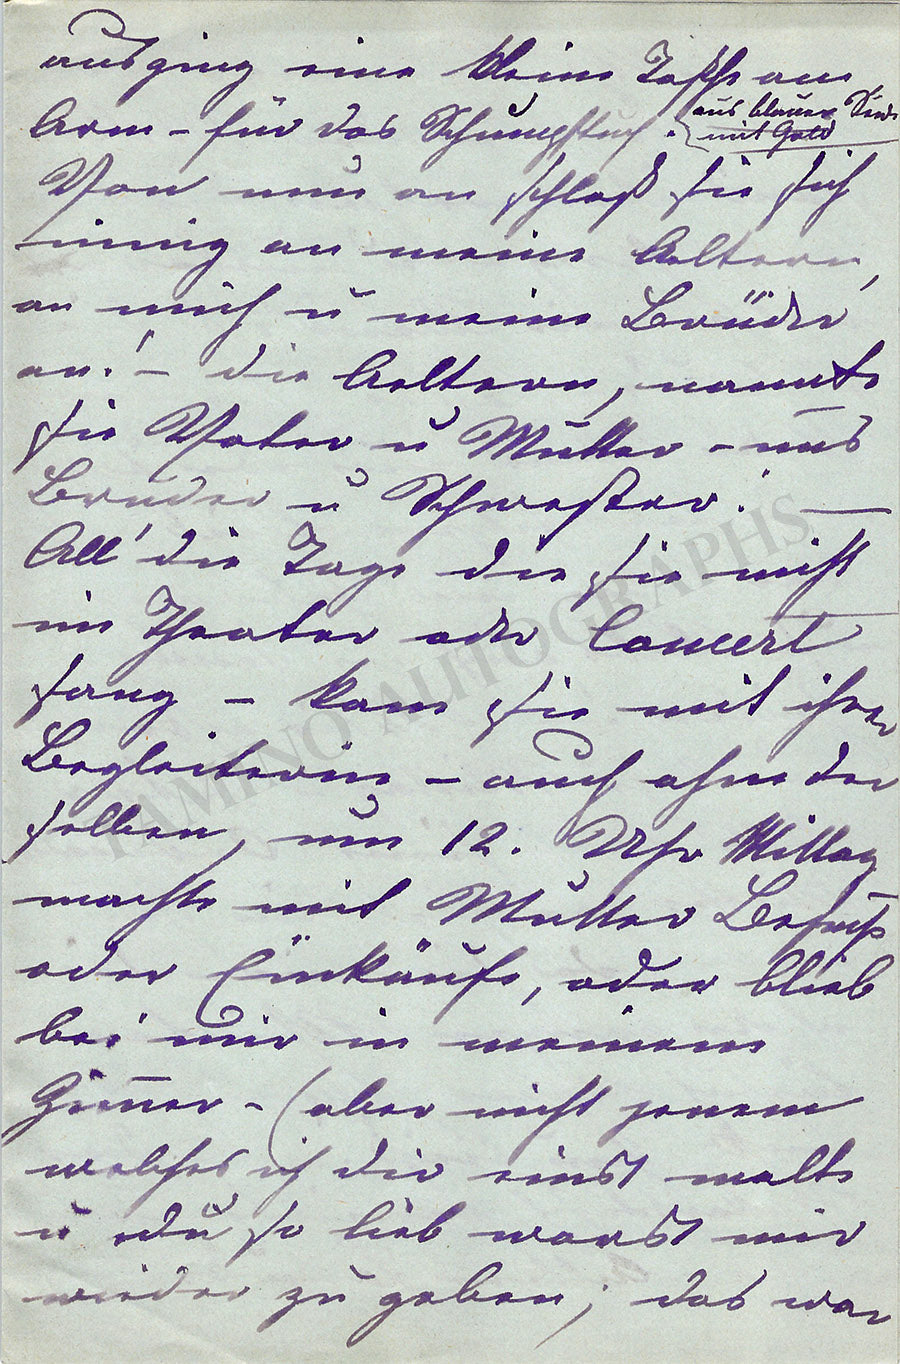 ausging eine kleine Tasche am
Arm – für das Schnupftuch. (aus blauer Seide
mit Gold
Von nun an schloß sie sich
innig an meine Aeltern,
an mich u meine Brüder
an! – die Aeltern, nannte
sie Vater u Mutter – uns
Bruder u Schwester! —
All' die Tage die sie nicht
im Theater oder Concert
sang – kam sie mit ihrer
Begleiterin – auch ohne der
selben, um 12. Uhr Mittag
machte mit Mutter Besuche
oder Einkäufe, oder blieb
bei mir in meinem
Zimmer – (aber nicht jenem
welches ich dir einst malte
u du so lieb warst mir
wieder zu geben; das war
TAMINO AUTOGRAPHS